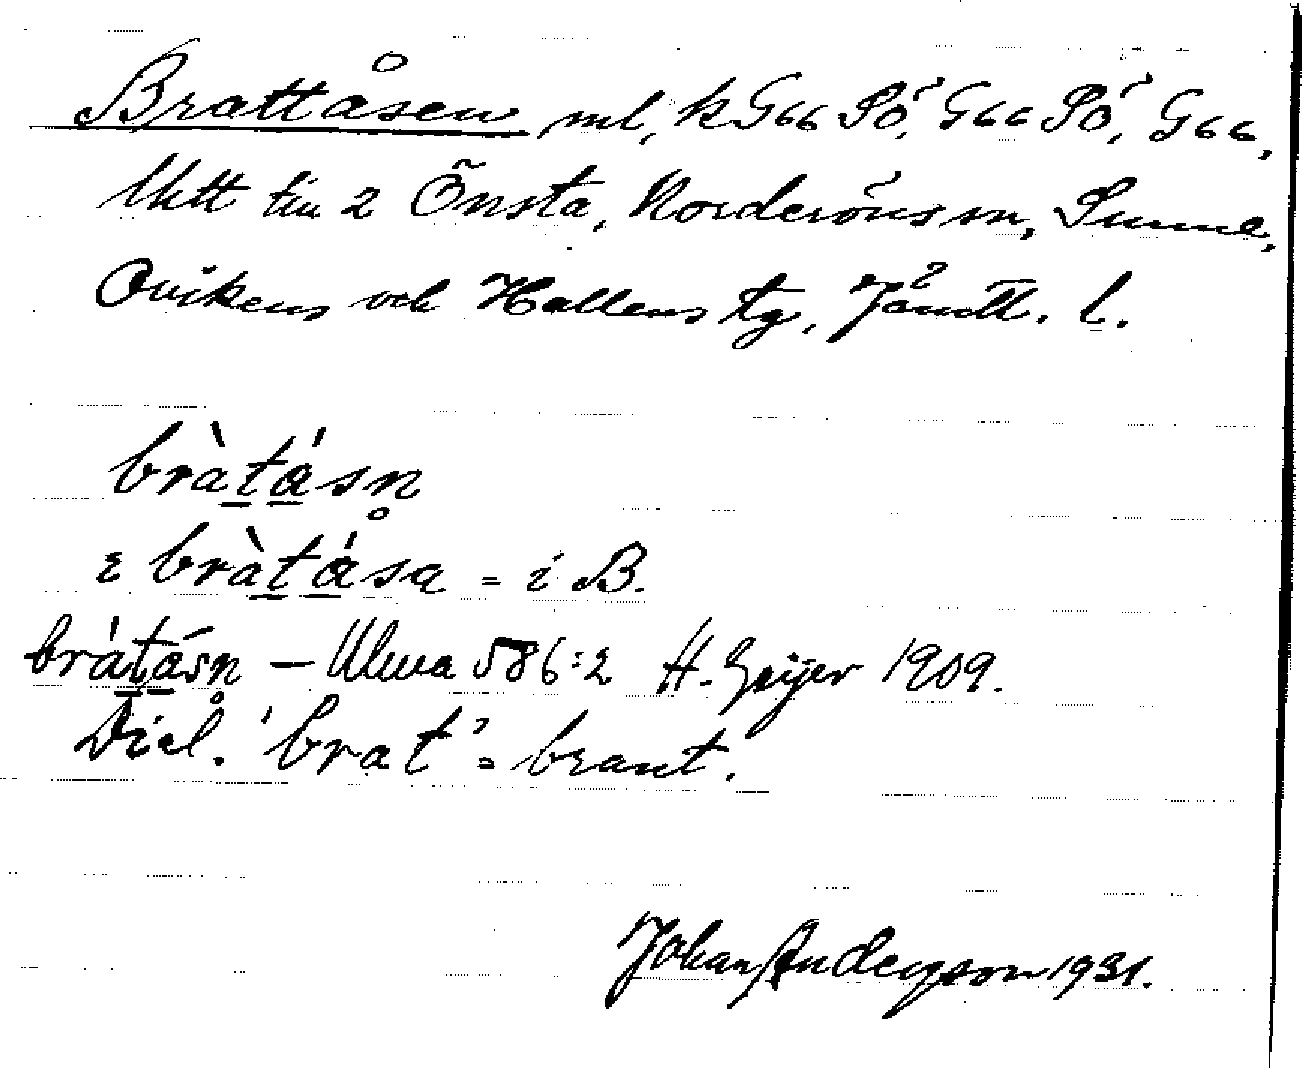 Brattåsen, ml, k G66 Sö, G66 Sö, G66,
Utt till 2 Önsta, Norderöns sn, Sunne,
Ovikens och Hallens tg, Jämtl. l.
bràtásn̥
ɪ bràtása = i B.
bràtásn̥ – Ulma 586:2 H. Geijer 1909.
Dial. 'brat' = brant.
Johan Anderson 1931.